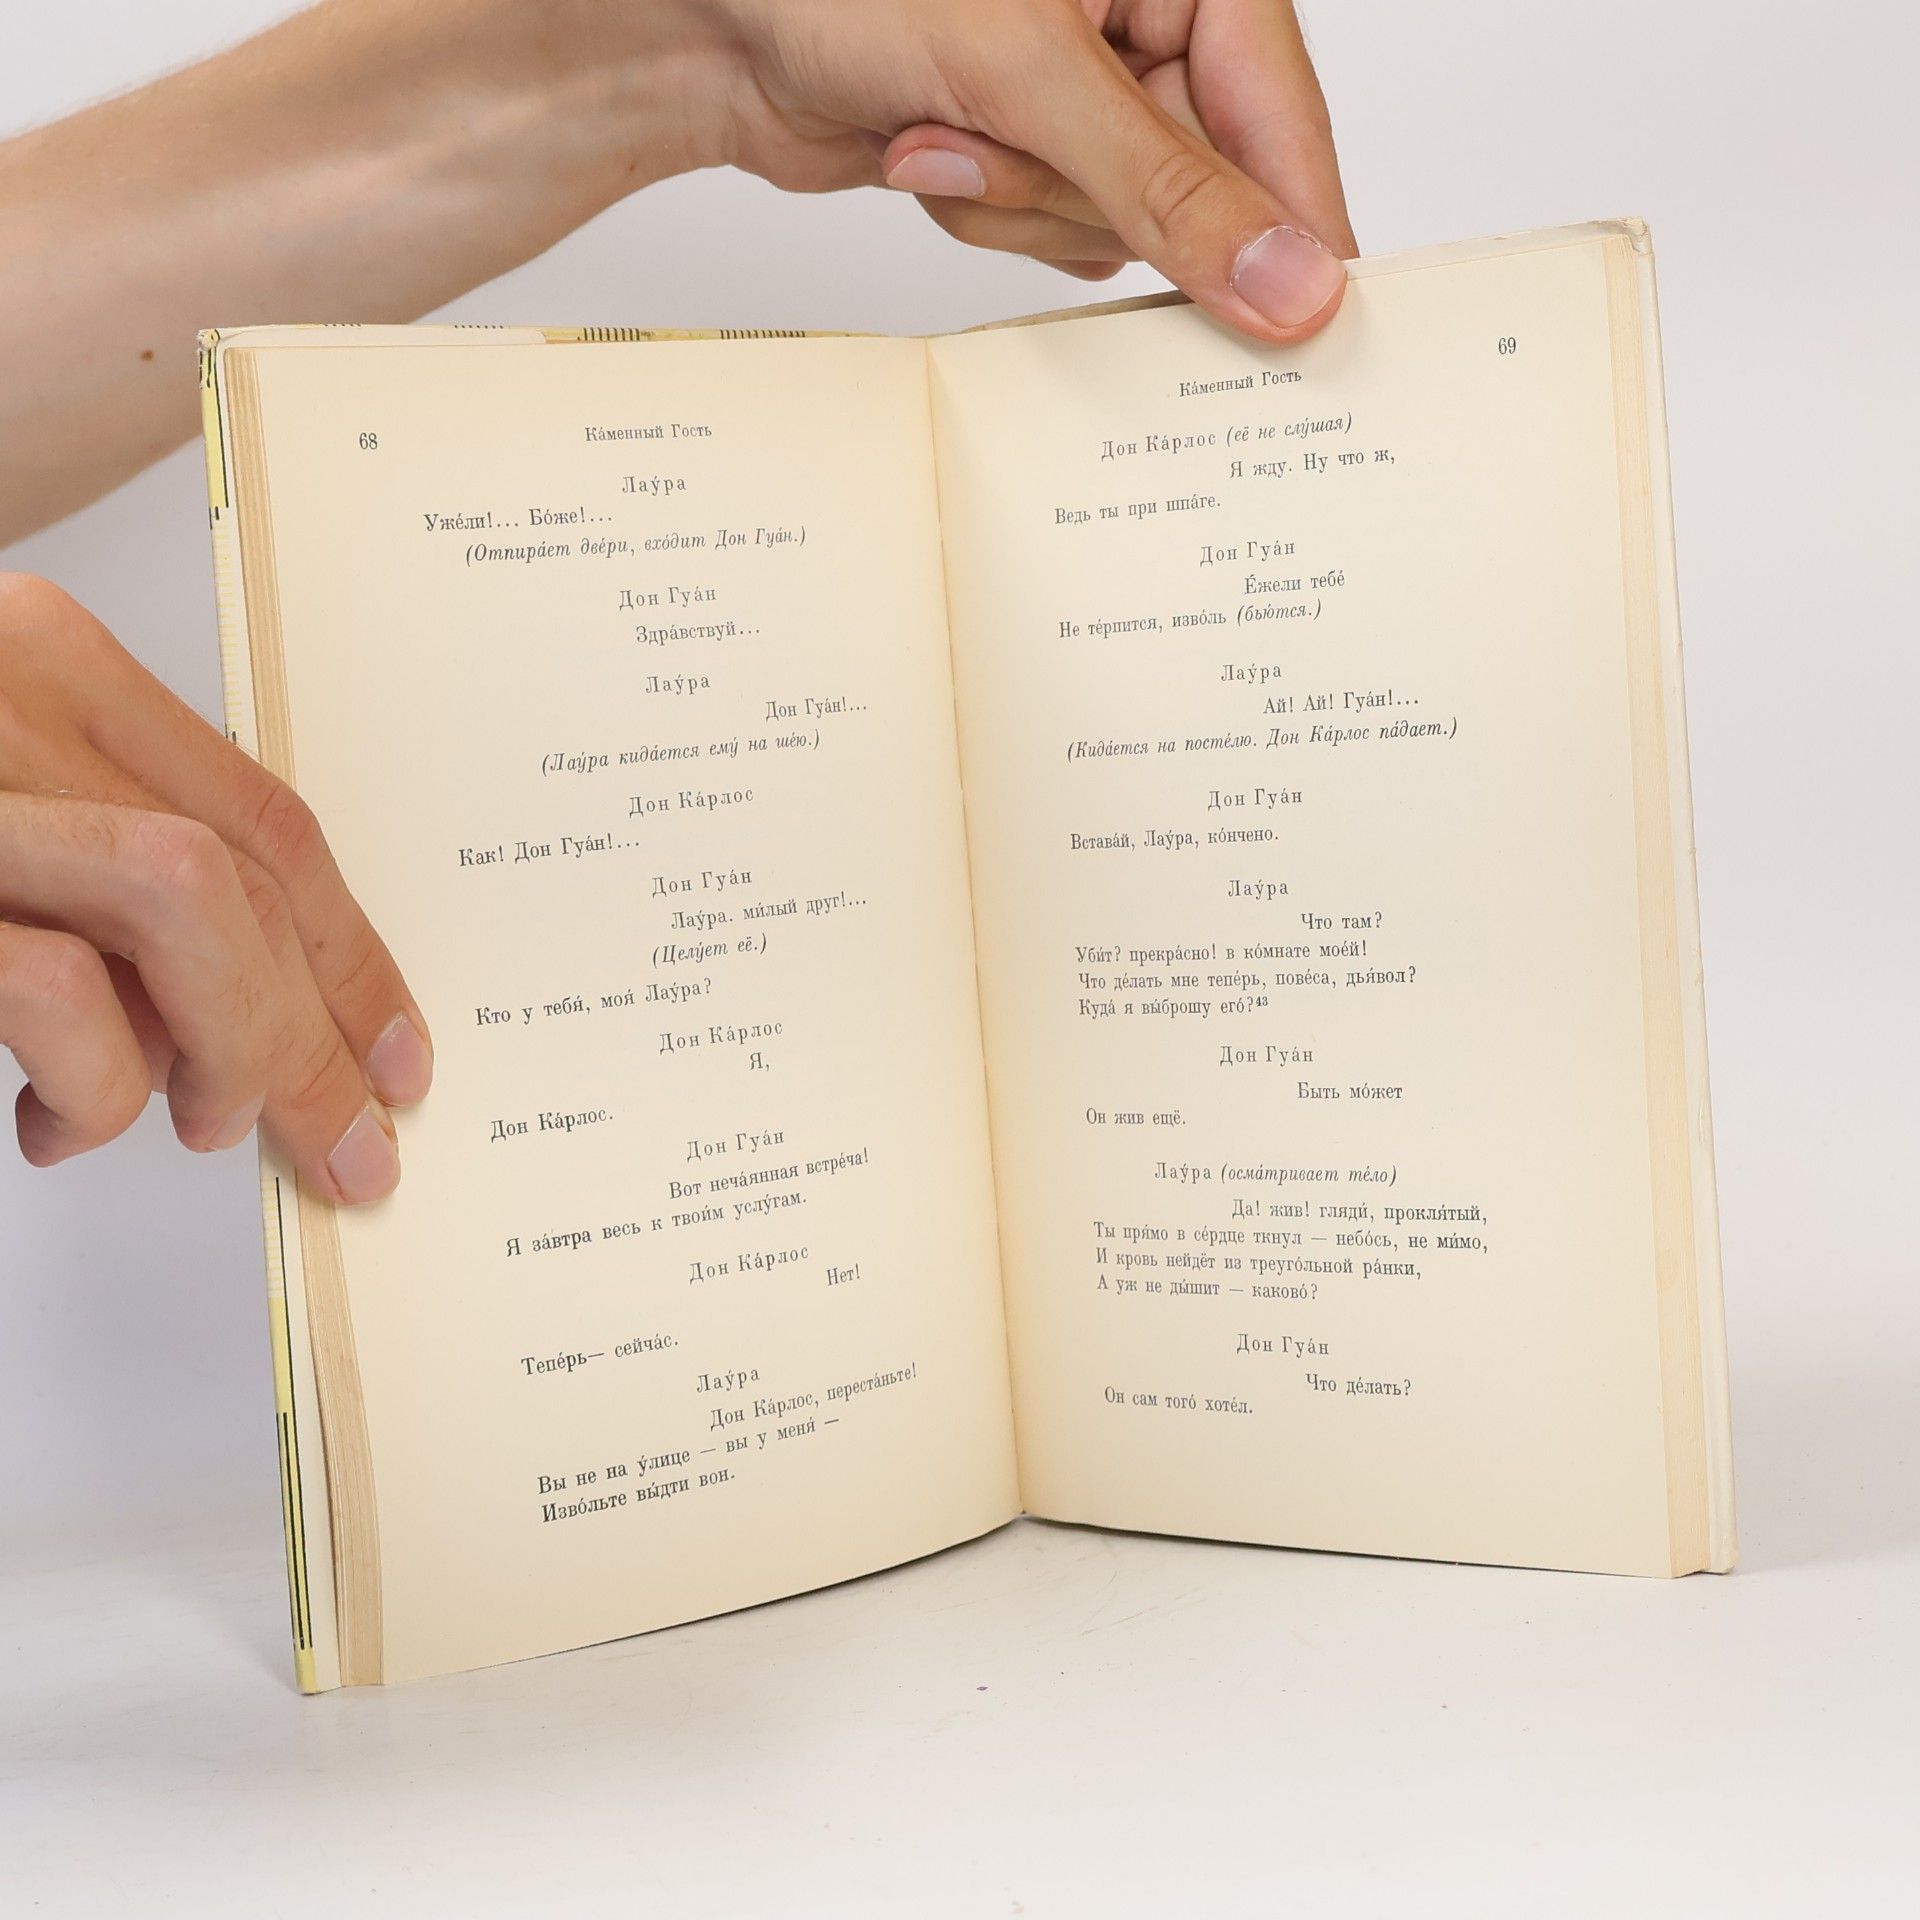 68
Ка́менный Гость
Лау́ра
Уже́ли!... Бо́же!...
(Отпира́ет две́ри, вхо́дит Дон Гуа́н.)
Дон Гуа́н
Здра́вствуй...
Лау́ра
Дон Гуа́н!...
(Лау́ра кида́ется ему́ на ше́ю.)
Дон Ка́рлос
Как! Дон Гуа́н!...
Дон Гуа́н
Лау́ра. ми́лый друг!...
(Целу́ет её.)
Кто у тебя́, моя́ Лау́ра?
Дон Ка́рлос
Я,
Дон Ка́рлос.
Дон Гуа́н
Вот неча́янная встре́ча!
Я за́втра весь к твои́м услу́гам.
Дон Ка́рлос
Нет!
Тепе́рь— сейча́с.
Лау́ра
Дон Ка́рлос, переста́ньте!
Вы не на у́лице — вы у меня́ —
Изво́льте вы́дти вон.
69
Ка́менный Гость
Дон Ка́рлос (её не слу́шая)
Я жду. Ну что ж,
Ведь ты при шпа́ге.
Дон Гуа́н
Е́жели тебе́
Не те́рпится, изво́ль (бью́тся.)
Лау́ра
Ай! Ай! Гуа́н!...
(Кида́ется на посте́лю. Дон Ка́рлос па́дает.)
Дон Гуа́н
Встава́й, Лау́ра, ко́нчено.
Лау́ра
Что там?
Уби́т? прекра́сно! в ко́мнате мое́й!
Что де́лать мне тепе́рь, пове́са, дья́вол?
Куда́ я вы́брошу его́?⁴³
Дон Гуа́н
Быть мо́жет
Он жив ещё.
Лау́ра (осма́тривает те́ло)
Да! жив! гляди́, прокля́тый,
Ты пря́мо в се́рдце ткнул — небо́сь, не ми́мо,
И кровь нейдёт из треуго́льной ра́нки,
А уж не ды́шит — каково́?
Дон Гуа́н
Что де́лать?
Он сам того́ хоте́л.